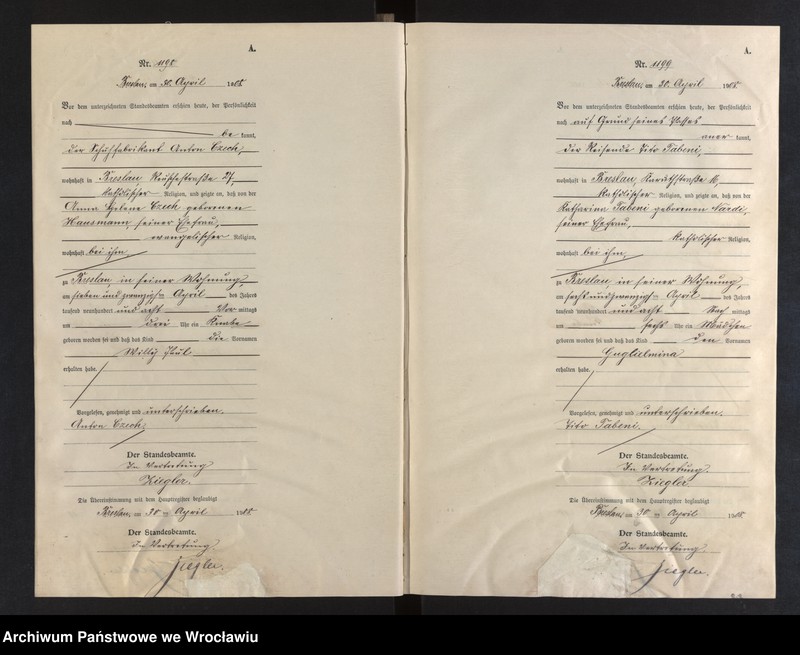 A.
Nr. 1198
Breslau, am 30. April 1908.
Vor dem unterzeichneten Standesbeamten erschien heute, der Persönlichkeit
nach
be kannt,
der Schuhfabrikant Anton Czech,
wohnhaft in Breslau, 27,
katholischer Religion, und zeigte an, daß von der
Anna Helene Czech geborenen
Hausmann, seiner Ehefrau,
evangelischer Religion,
wohnhaft bei ihm,
zu Breslau in seiner Wohnung,
am sieben und zwanzigsten April des Jahres
tausend neunhundert und acht Vor mittags
um drei Uhr ein Knabe
geboren worden sei und daß das Kind die Vornamen
Willy
erhalten habe.
Vorgelesen, genehmigt und unterschrieben.
Anton Czech.
Der Standesbeamte.
In Vertretung
Ziegler.
Die Übereinstimmung mit dem Hauptregister beglaubigt
Breslau, am 30. April 1908.
Der Standesbeamte.
In Vertretung.
Ziegler.
A.
Nr. 1199
Breslau, am 30. April 1908.
Vor dem unterzeichneten Standesbeamten erschien heute, der Persönlichkeit
nach auf Grund seines Passes
aner kannt,
der Reisende Vito Tabeni,
wohnhaft in Breslau, 16,
katholischer Religion, und zeigte an, daß von der
Katharina Tabeni geborenen Nardi,
seiner Ehefrau,
katholischer Religion,
wohnhaft bei ihm,
zu Breslau in seiner Wohnung,
am sechs und zwanzigsten April des Jahres
tausend neunhundert und acht Nach mittags
um sechs Uhr ein Mädchen
geboren worden sei und daß das Kind den Vornamen
Guglielmina
erhalten habe.
Vorgelesen, genehmigt und unterschrieben.
Vito Tabeni.
Der Standesbeamte.
In Vertretung
Ziegler.
Die Übereinstimmung mit dem Hauptregister beglaubigt
Breslau, am 30. April 1908.
Der Standesbeamte.
In Vertretung.
Ziegler.
Archiwum Państwowe we Wrocławiu